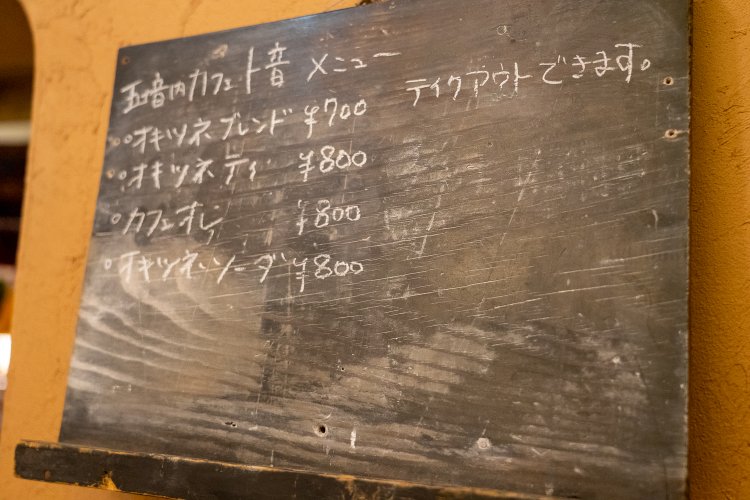 五十音内カフェ 十音 メニュー
テイクアウトできます。
○オキツネ ブレンド ¥700
○オキツネ ティ ¥800
○カフェオレ ¥800
○オキツネソーダ ¥800